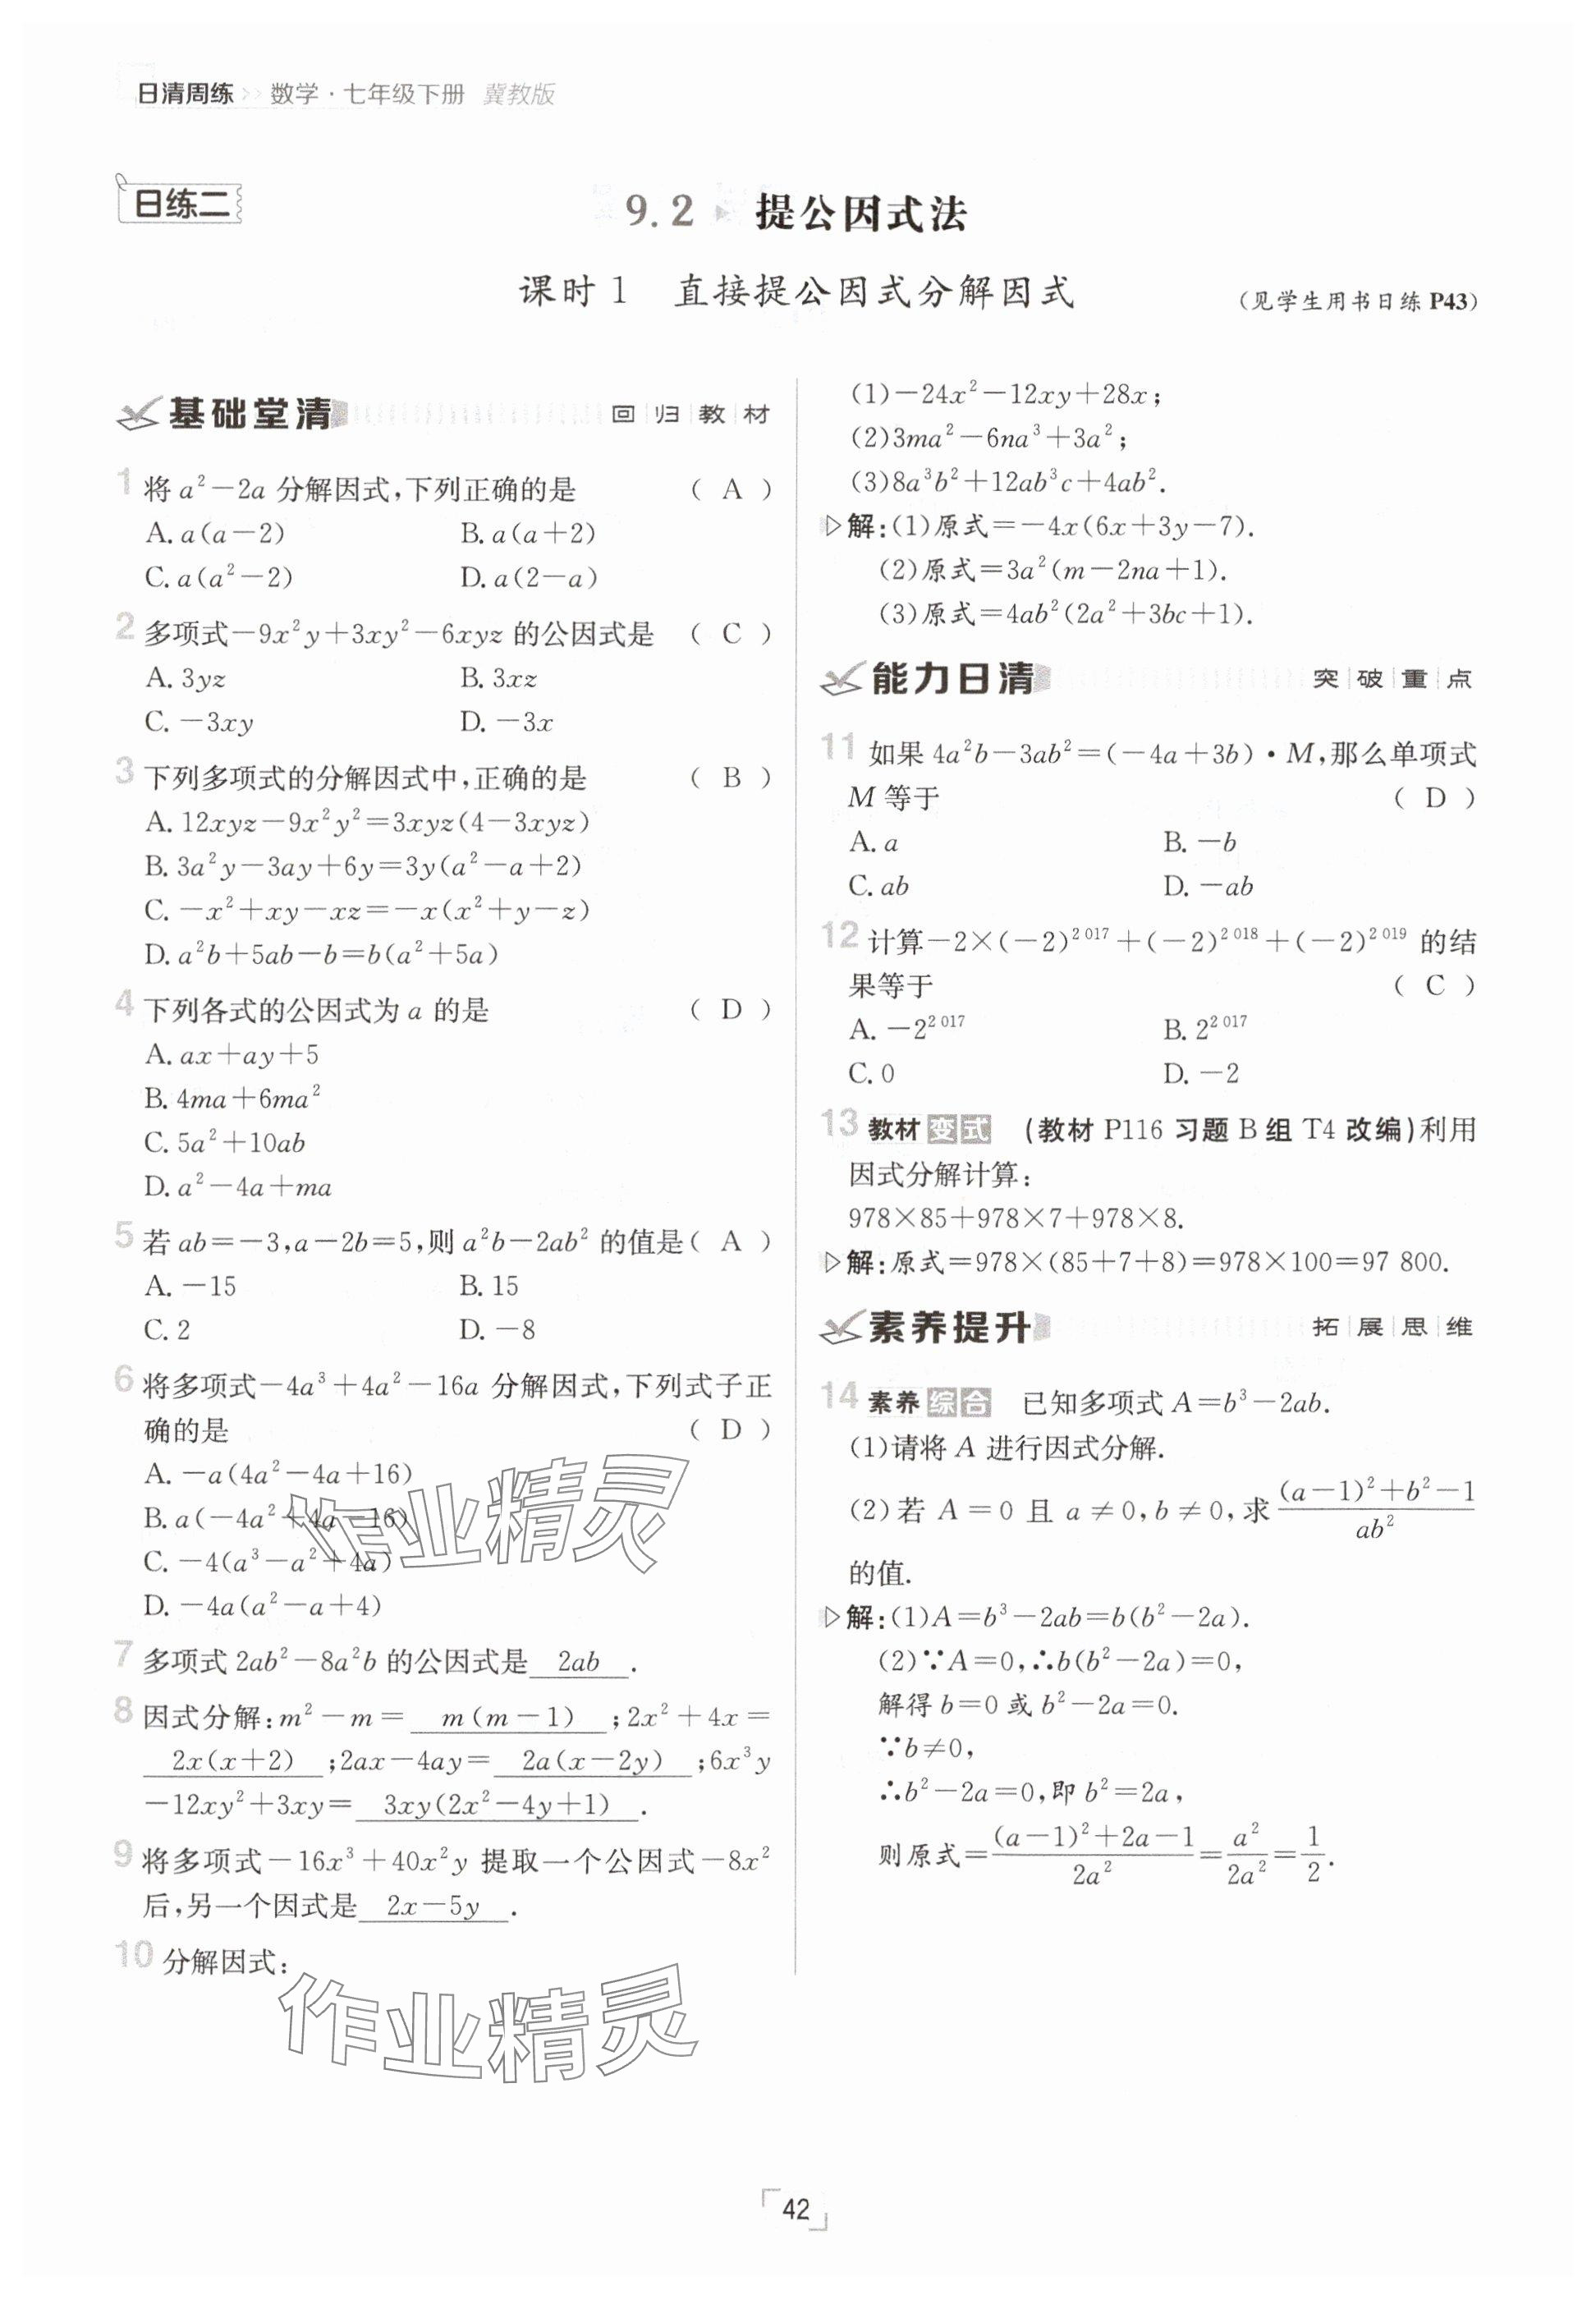 日清周练 >> 数学·七年级下册 冀教版
日练二
9.2 提公因式法
课时1 直接提公因式分解因式 (见学生用书日练P43)
基础堂清 回归教材
1 将 a²-2a 分解因式,下列正确的是 ( A )
A. a(a-2) B. a(a+2)
C. a(a²-2) D. a(2-a)
2 多项式-9x²y+3xy²-6xyz 的公因式是 ( C )
A. 3yz B. 3xz
C. -3xy D. -3x
3 下列多项式的分解因式中,正确的是 ( B )
A. 12xyz-9x²y²=3xyz(4-3xyz)
B. 3a²y-3ay+6y=3y(a²-a+2)
C. -x²+xy-xz=-x(x²+y-z)
D. a²b+5ab-b=b(a²+5a)
4 下列各式的公因式为 a 的是 ( D )
A. ax+ay+5
B. 4ma+6ma²
C. 5a²+10ab
D. a²-4a+ma
5 若 ab=-3,a-2b=5,则 a²b-2ab² 的值是( A )
A. -15 B. 15
C. 2 D. -8
6 将多项式-4a³+4a²-16a 分解因式,下列式子正
确的是 ( D )
A. -a(4a²-4a+16)
B. a(-4a²+4a-16)
C. -4(a³-a²+4a)
D. -4a(a²-a+4)
7 多项式 2ab²-8a²b 的公因式是 2ab .
8 因式分解:m²-m= m(m-1) ;2x²+4x=
2x(x+2) ;2ax-4ay= 2a(x-2y) ;6x³y
-12xy²+3xy= 3xy(2x²-4y+1) .
9 将多项式-16x³+40x²y 提取一个公因式-8x²
后,另一个因式是 2x-5y .
10 分解因式:
(1)-24x²-12xy+28x;
(2)3ma²-6na³+3a²;
(3)8a³b²+12ab³c+4ab².
解:(1)原式=-4x(6x+3y-7).
(2)原式=3a²(m-2na+1).
(3)原式=4ab²(2a²+3bc+1).
能力日清 突破重点
11 如果 4a²b-3ab²=(-4a+3b)·M,那么单项式
M 等于 ( D )
A. a B. -b
C. ab D. -ab
12 计算-2×(-2)²⁰¹⁷+(-2)²⁰¹⁸+(-2)²⁰¹⁹ 的结
果等于 ( C )
A. -2²⁰¹⁷ B. 2²⁰¹⁷
C. 0 D. -2
13 教材变式 (教材 P116 习题 B 组 T4 改编)利用
因式分解计算:
978×85+978×7+978×8.
解:原式=978×(85+7+8)=978×100=97 800.
素养提升 拓展思维
14 素养综合 已知多项式 A=b³-2ab.
(1)请将 A 进行因式分解.
(2)若 A=0 且 a≠0,b≠0,求 ((a-1)²+b²-1)/(ab²)
的值.
解:(1)A=b³-2ab=b(b²-2a).
(2)∵A=0,∴b(b²-2a)=0,
解得 b=0 或 b²-2a=0.
∵b≠0,
∴b²-2a=0,即 b²=2a,
则原式=((a-1)²+2a-1)/(2a²)=a²/(2a²)=1/2.
作业精灵
作业精灵
42